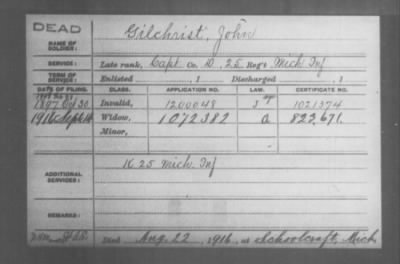 DEAD
Gilchrist, John
NAME OF SOLDIER:
SERVICE: Late rank, Capt. Co. D, 25 Reg't Mich Inf
TERM OF SERVICE: Enlisted , 1 Discharged , 1
DATE OF FILING. CLASS. APPLICATION NO. LAW. CERTIFICATE NO.
1897 Oct 30 Invalid, 1200048 1021374
1916 Sept 14 Widow, 1072382 a 822,671.
Minor,
ADDITIONAL SERVICES: K 25 Mich. Inf
REMARKS:
Died Aug. 22, 1916, at Schoolcraft, Mich.